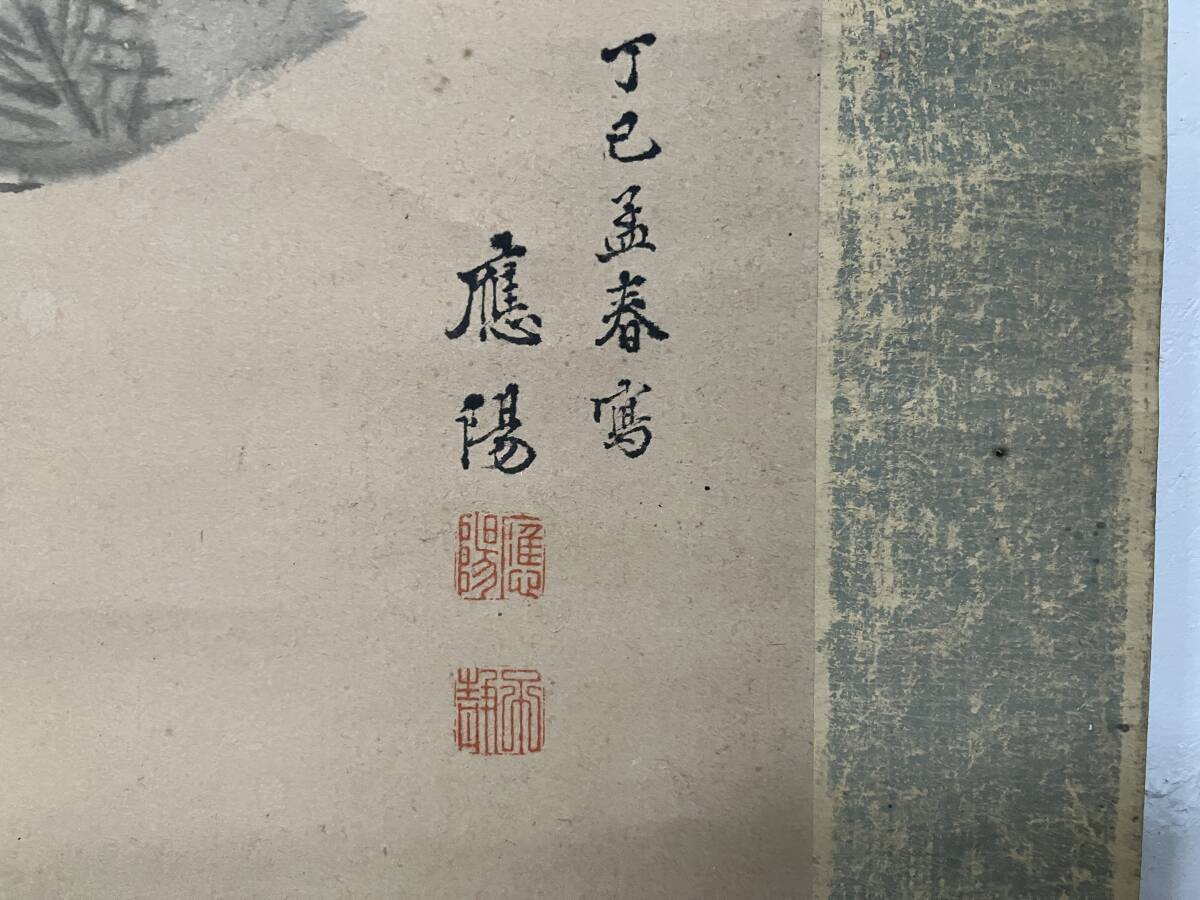 丁巳孟春寫
應陽
應陽